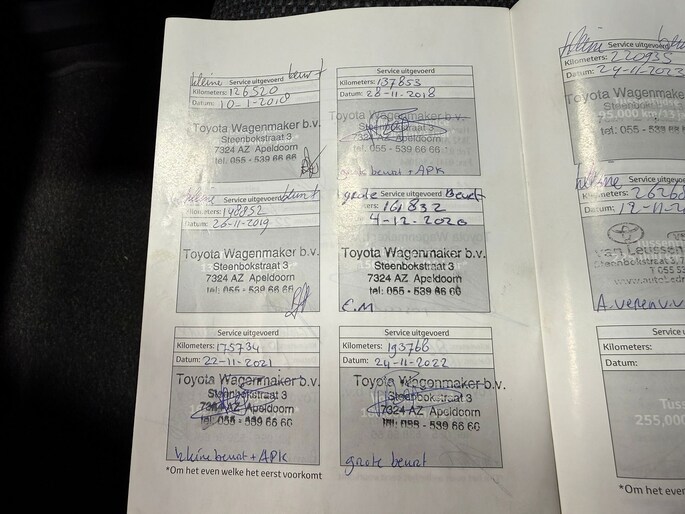 kleine beurt
Service uitgevoerd
Kilometers: 126520
Datum: 10-1-2018
Toyota Wagenmaker b.v.
Steenbokstraat 3
7324 AZ Apeldoorn
tel: 055 - 539 66 66
Service uitgevoerd
Kilometers: 137853
Datum: 28-11-2018
Toyota Wagenmaker b.v.
Steenbokstraat 3
7324 AZ Apeldoorn
tel: 055 - 539 66 66
grote beurt + APK
kleine beurt
Service uitgevoerd
Kilometers: 148852
Datum: 26-11-2019
Toyota Wagenmaker b.v.
Steenbokstraat 3
7324 AZ Apeldoorn
tel: 055 - 539 66 66
grote Beurt
Service uitgevoerd
161832
4-12-2020
Toyota Wagenmaker b.v.
Steenbokstraat 3
7324 AZ Apeldoorn
tel: 055 - 539 66 66
E.M
Service uitgevoerd
Kilometers: 175734
Datum: 22-11-2021
Toyota Wagenmaker b.v.
Steenbokstraat 3
7324 AZ Apeldoorn
tel: 055 - 539 66 66
kleine beurt + APK
Service uitgevoerd
Kilometers: 193768
Datum: 24-11-2022
Toyota Wagenmaker b.v.
Steenbokstraat 3
7324 AZ Apeldoorn
tel: 055 - 539 66 66
grote beurt
*Om het even welke het eerst voorkomt
kleine
Service uitgevo
Kilometers: 220935
Datum: 24-11-2023
Toyota Wage
Steenbokstra
7324 AZ Ap
tel: 055 - 53
kleine
Service uitgevoe
Kilometers:
Datum:
van Leussen
Steenbokstraat 3, 7
T 055 53
Service u
Kilometers:
Datum:
Tuss
255,000
*Om het even